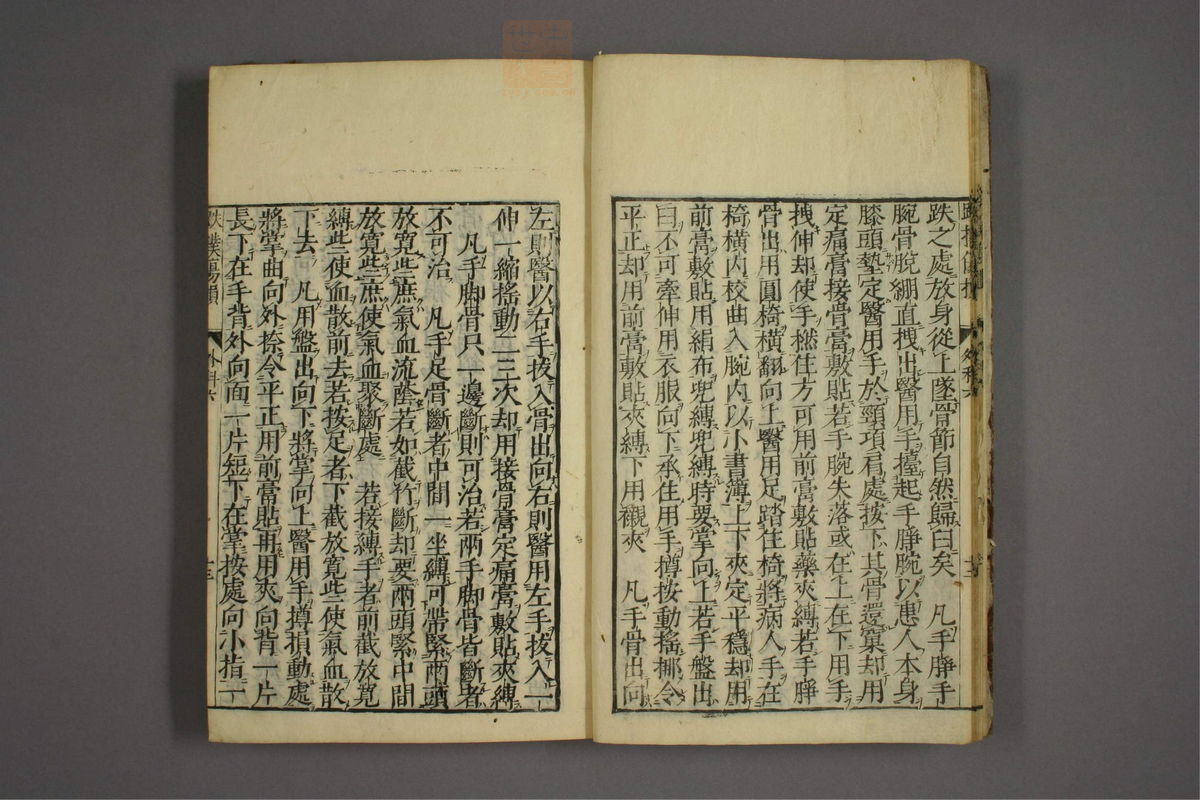 跌之處放身從上墜骨節自然歸臼矣　凡手睜手
腕骨脫綳直拽出醫用手撻起手睜腕以患人本身
膝頭墊定醫用手於頸項肩處按下其骨還窠却用
定痛膏接骨膏敷貼若手腕失落或在上在下用手
拽伸却使手撚住方可用前膏敷貼藥夾縛若手睜
骨出用圓椅橫翻向上醫用足踏住椅將病人手在
椅橫內校曲入腕內以小書簿上下夾定平穩却用
前膏敷貼用絹布兜縛兜縛時要掌向上若手盤出
臼不可牽伸用衣服向下承住用手撙按動搖挪令
平正却用前膏敷貼夾縛下用襯夾　凡手骨出向
左則醫以右手拔入骨出向右則醫用左手拔入一
伸一縮搖動二三次却用接骨膏定痛膏敷貼夾縛
凡手脚骨只一邊斷則可治若兩手脚骨皆斷者
不可治　凡手足骨斷者中間一坐縛可帶緊兩頭
放寬些庶氣血流蔭若如截竹斷却要兩頭緊中間
放寬些庶使氣血聚斷處　若接縛手者前截放寬
縛些使血散前去若按足者下截放寬些使氣血散
下去　凡用盤出向下將掌向上醫用手撙損動處
將掌曲向外捺令平正用前膏貼再用夾向背一片
長下在手背外向面一片短下在掌按處向小指一
外科六